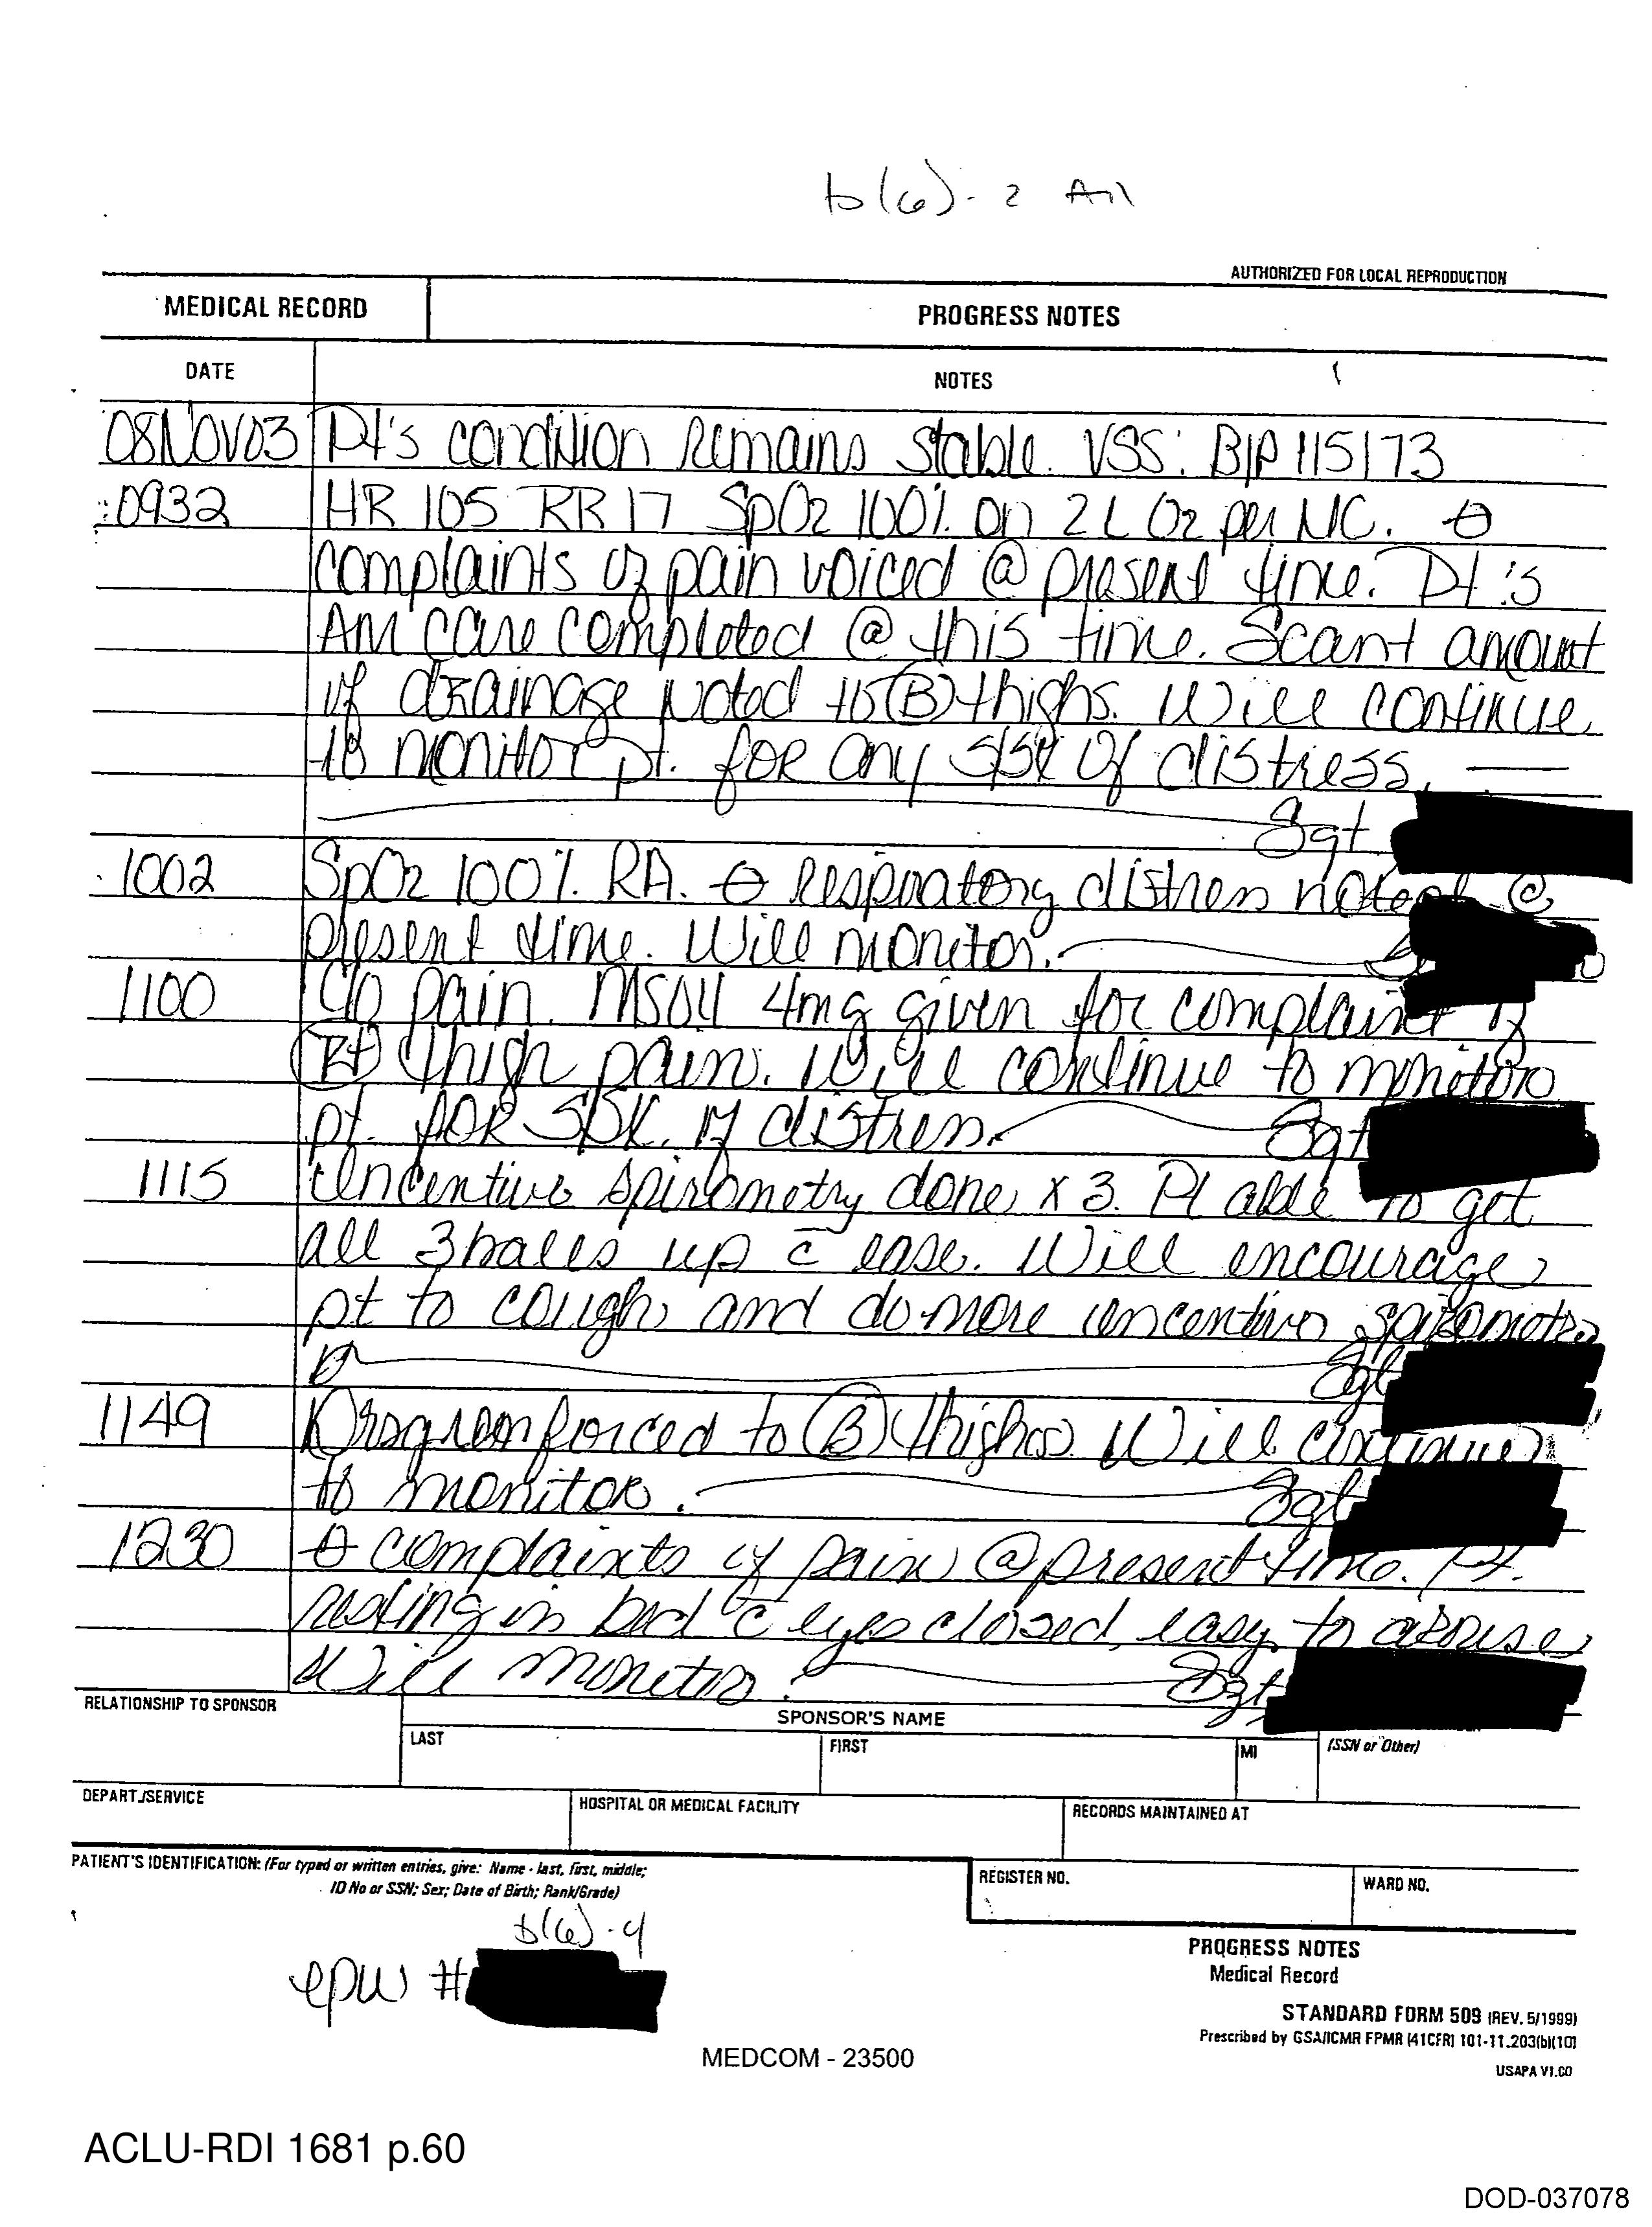 b(6)-2 All
AUTHORIZED FOR LOCAL REPRODUCTION
MEDICAL RECORD
PROGRESS NOTES
DATE
NOTES
08NOV03 Pt's condition remains stable. VSS: B/P 115/73
0932 HR 105 RR 17 SpO2 100% on 2L O2 per NC. ⊖
complaints of pain voiced @ present time. Pt's
AM care completed @ this time. Scant amount
of drainage noted to (B) thighs. Will continue
to monitor pt. for any S/Sx of distress.
Sgt
1002 SpO2 100% RA. ⊖ respiratory distress noted @
present time. Will monitor.
1100 c/o pain. MSO4 4mg given for complaint of
(Rt) thigh pain. Will continue to monitor
pt. for S/Sx. of distress. Sgt
1115 Incentive spirometry done x 3. Pt able to get
all 3 balls up c̄ ease. Will encourage
pt to cough and do more incentive spirometry
Sgt
1149 Drsg reinforced to (B) thighs. Will continue
to monitor. Sgt
1230 ⊖ complaints of pain @ present time. Pt.
resting in bed c̄ eyes closed, easy to arouse
Will monitor. Sgt
RELATIONSHIP TO SPONSOR
SPONSOR'S NAME
LAST
FIRST
MI
(SSN or Other)
DEPART./SERVICE
HOSPITAL OR MEDICAL FACILITY
RECORDS MAINTAINED AT
PATIENT'S IDENTIFICATION: (For typed or written entries, give: Name - last, first, middle;
ID No or SSN; Sex; Date of Birth; Rank/Grade)
REGISTER NO.
WARD NO.
b(6)-4
epw #
PROGRESS NOTES
Medical Record
STANDARD FORM 509 (REV. 5/1999)
Prescribed by GSA/ICMR FPMR (41CFR) 101-11.203(b)(10)
USAPA V1.00
MEDCOM - 23500
ACLU-RDI 1681 p.60
DOD-037078